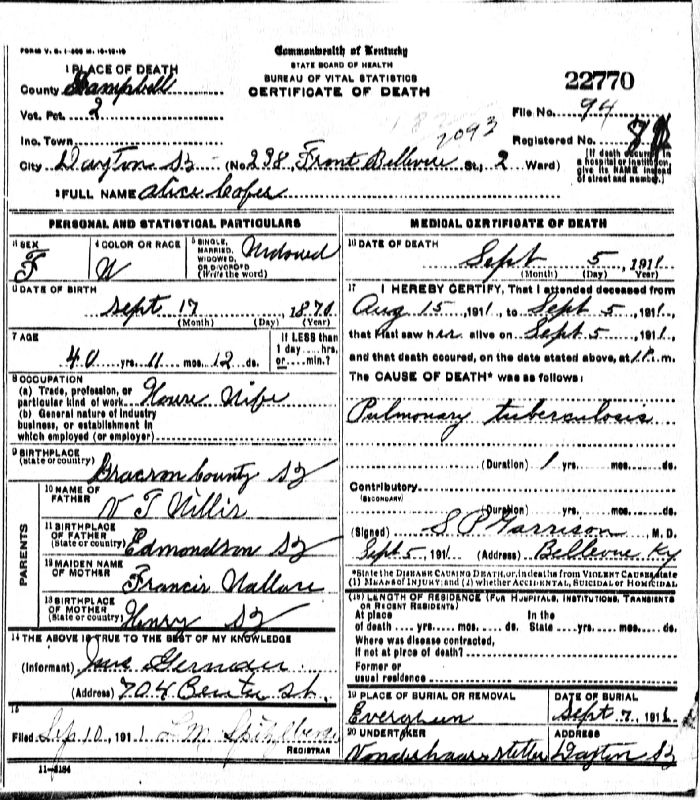 FORM V. S. 1-500 M. 10-12-10
Commonwealth of Kentucky
STATE BOARD OF HEALTH
BUREAU OF VITAL STATISTICS
CERTIFICATE OF DEATH
22770
1 PLACE OF DEATH
County Campbell
Vot. Pct. 2
File No. 94
2093
Inc. Town
Registered No.
City Dayton Ky (No. 238, Front Bellevue St., 2 Ward)
[If death occurred in a hospital or institution, give its NAME instead of street and number.]
2 FULL NAME Alice Cofer
PERSONAL AND STATISTICAL PARTICULARS
3 SEX
F
4 COLOR OR RACE
W
5 SINGLE, MARRIED, WIDOWED, OR DIVORCED (Write the word)
Widowed
6 DATE OF BIRTH
Sept 17, 1870
(Month) (Day) (Year)
7 AGE
40 yrs. 11 mos. 12 ds.
If LESS than 1 day ... hrs. or ... min.?
8 OCCUPATION
(a) Trade, profession, or particular kind of work House Wife
(b) General nature of industry business, or establishment in which employed (or employer)
9 BIRTHPLACE
(State or country) Bracken County Ky
PARENTS
10 NAME OF FATHER
W T Willis
11 BIRTHPLACE OF FATHER
(State or country) Edmondson Ky
12 MAIDEN NAME OF MOTHER
Francis Wallace
13 BIRTHPLACE OF MOTHER
(State or country) Henry Ky
14 THE ABOVE IS TRUE TO THE BEST OF MY KNOWLEDGE
(Informant)
(Address) 704 St.
15
Filed Sep 10, 1911 L.M.
REGISTRAR
11-5184
MEDICAL CERTIFICATE OF DEATH
16 DATE OF DEATH
Sept 5, 1911
(Month) (Day) (Year)
17 I HEREBY CERTIFY, That I attended deceased from
Aug 15, 1911, to Sept 5, 1911,
that I last saw her alive on Sept 5, 1911,
and that death occured, on the date stated above, at m.
The CAUSE OF DEATH* was as follows:
Pulmonary tuberculosis
(Duration) 1 yrs. mos. ds.
Contributory
(SECONDARY)
(Duration) yrs. mos. ds.
(Signed) S P Garrison, M.D.
Sept 5, 1911 (Address) Bellevue Ky
*State the DISEASE CAUSING DEATH, or, in deaths from VIOLENT CAUSES, state (1) MEANS OF INJURY; and (2) whether ACCIDENTAL, SUICIDAL or HOMICIDAL
(18) LENGTH OF RESIDENCE (FOR HOSPITALS, INSTITUTIONS, TRANSIENTS OR RECENT RESIDENTS)
At place of death yrs. mos. ds. In the State yrs. mos. ds.
Where was disease contracted, if not at place of death?
Former or usual residence
19 PLACE OF BURIAL OR REMOVAL
Evergreen
DATE OF BURIAL
Sept 7, 1911
20 UNDERTAKER
Vonderhaar & Stetter
ADDRESS
Dayton Ky